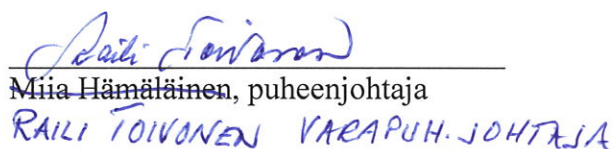 Raili Toivonen
Miia Hämäläinen, puheenjohtaja
RAILI TOIVONEN VARAPUH. JOHTAJA